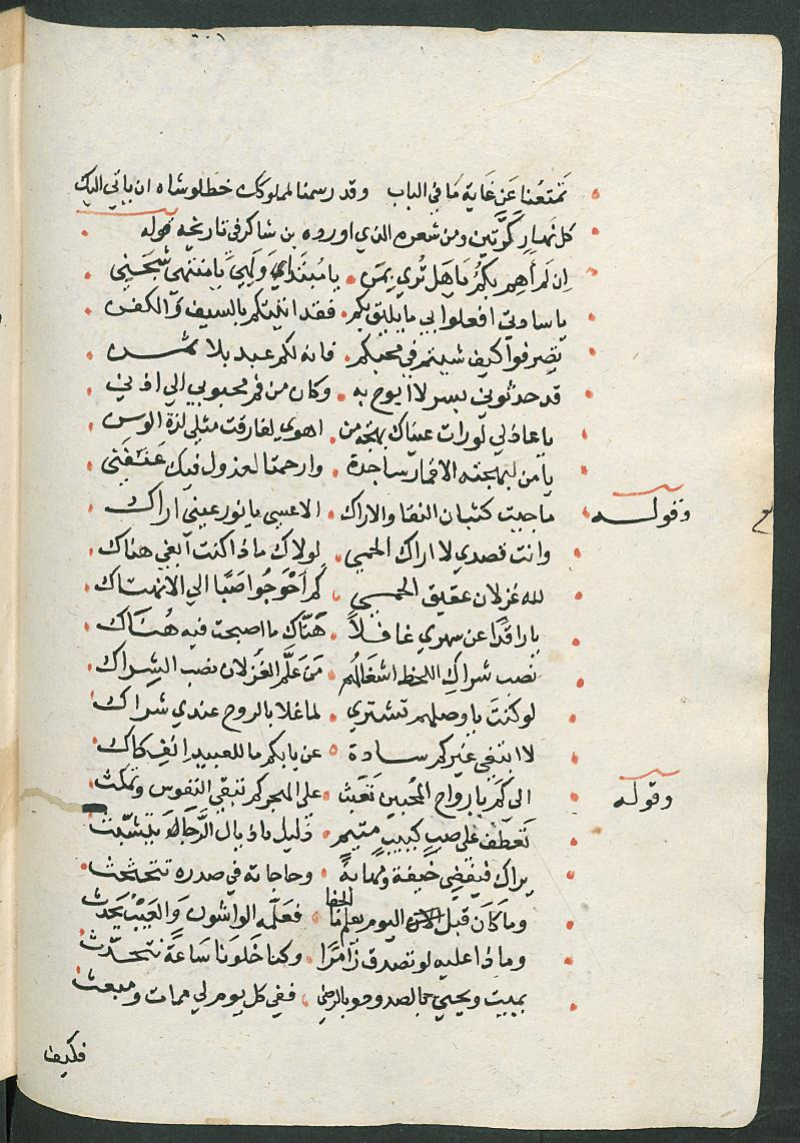 تمتعنا عن غاية ما في الباب وقد رسمنا لمملوكك خطلوشاه ان ياتي اليك
كل نهار كرتين ومن شعره الذي اورده بن شاكر في تاريخه قوله
ان لم أهم بكم يا هل تري بمن يا مبتداي ولي يا منتهي شجني
يا سادتي افعلوا بي ما يليق بكم فقد اتيتكم بالسيف والكفن
تصرفوا كيف شيتم في محبكم فانه لكم عبد بلا ثمن
قد حدثوني بسر لا ابوح به وكان من فم محبوبي الي اذني
يا عاذلي لو رات عيناك بهجة من اهوي لفارقت مثلي لذة الوسن
يا من لبهجته الاقمار ساجدة وارحمتا لعذول فيك عنفني
وقوله ما جيت كثبان النقا والاراك الا عسي يا نور عيني اراك
وانت قصدي لا اراك الحمي لولاك ماذا كنت آبغي هناك
لله غزلان عقيق الحمي كم أحوجوا صبا الي الانهتاك
يا راقدا عن سهري غافلا هناك ما اصبحت فيه هناك
نصب شراك اللحظ اشغالهم من علم الغزلان نصب الشراك
لو كنت يا وصلهم تشتري لما غلا بالروح عندي شراك
لا ابتغي غيركم سادة عن بابكم ما للعبيد انفكاك
وقوله الي كم بارواح المحبين تعبث علي الهجر كم تبقي النفوس وتمكث
تعطف علي صب كييب متيم ذليل باذيال الرجا يتشبث
يراك فيقضي خيفة ومهابة وحاجاته في صدره تتحثحث
وما كان قبل اليوم يعلم ما الجفا فعلمه الواشون والعيب يحدث
وماذا عليه لو تصدق زآمرا وكنا خلونا ساعة نتحدث
يميت ويحيي بالصدود وبالرضي ففي كل يوم لي ممات ومبعث
فكيف